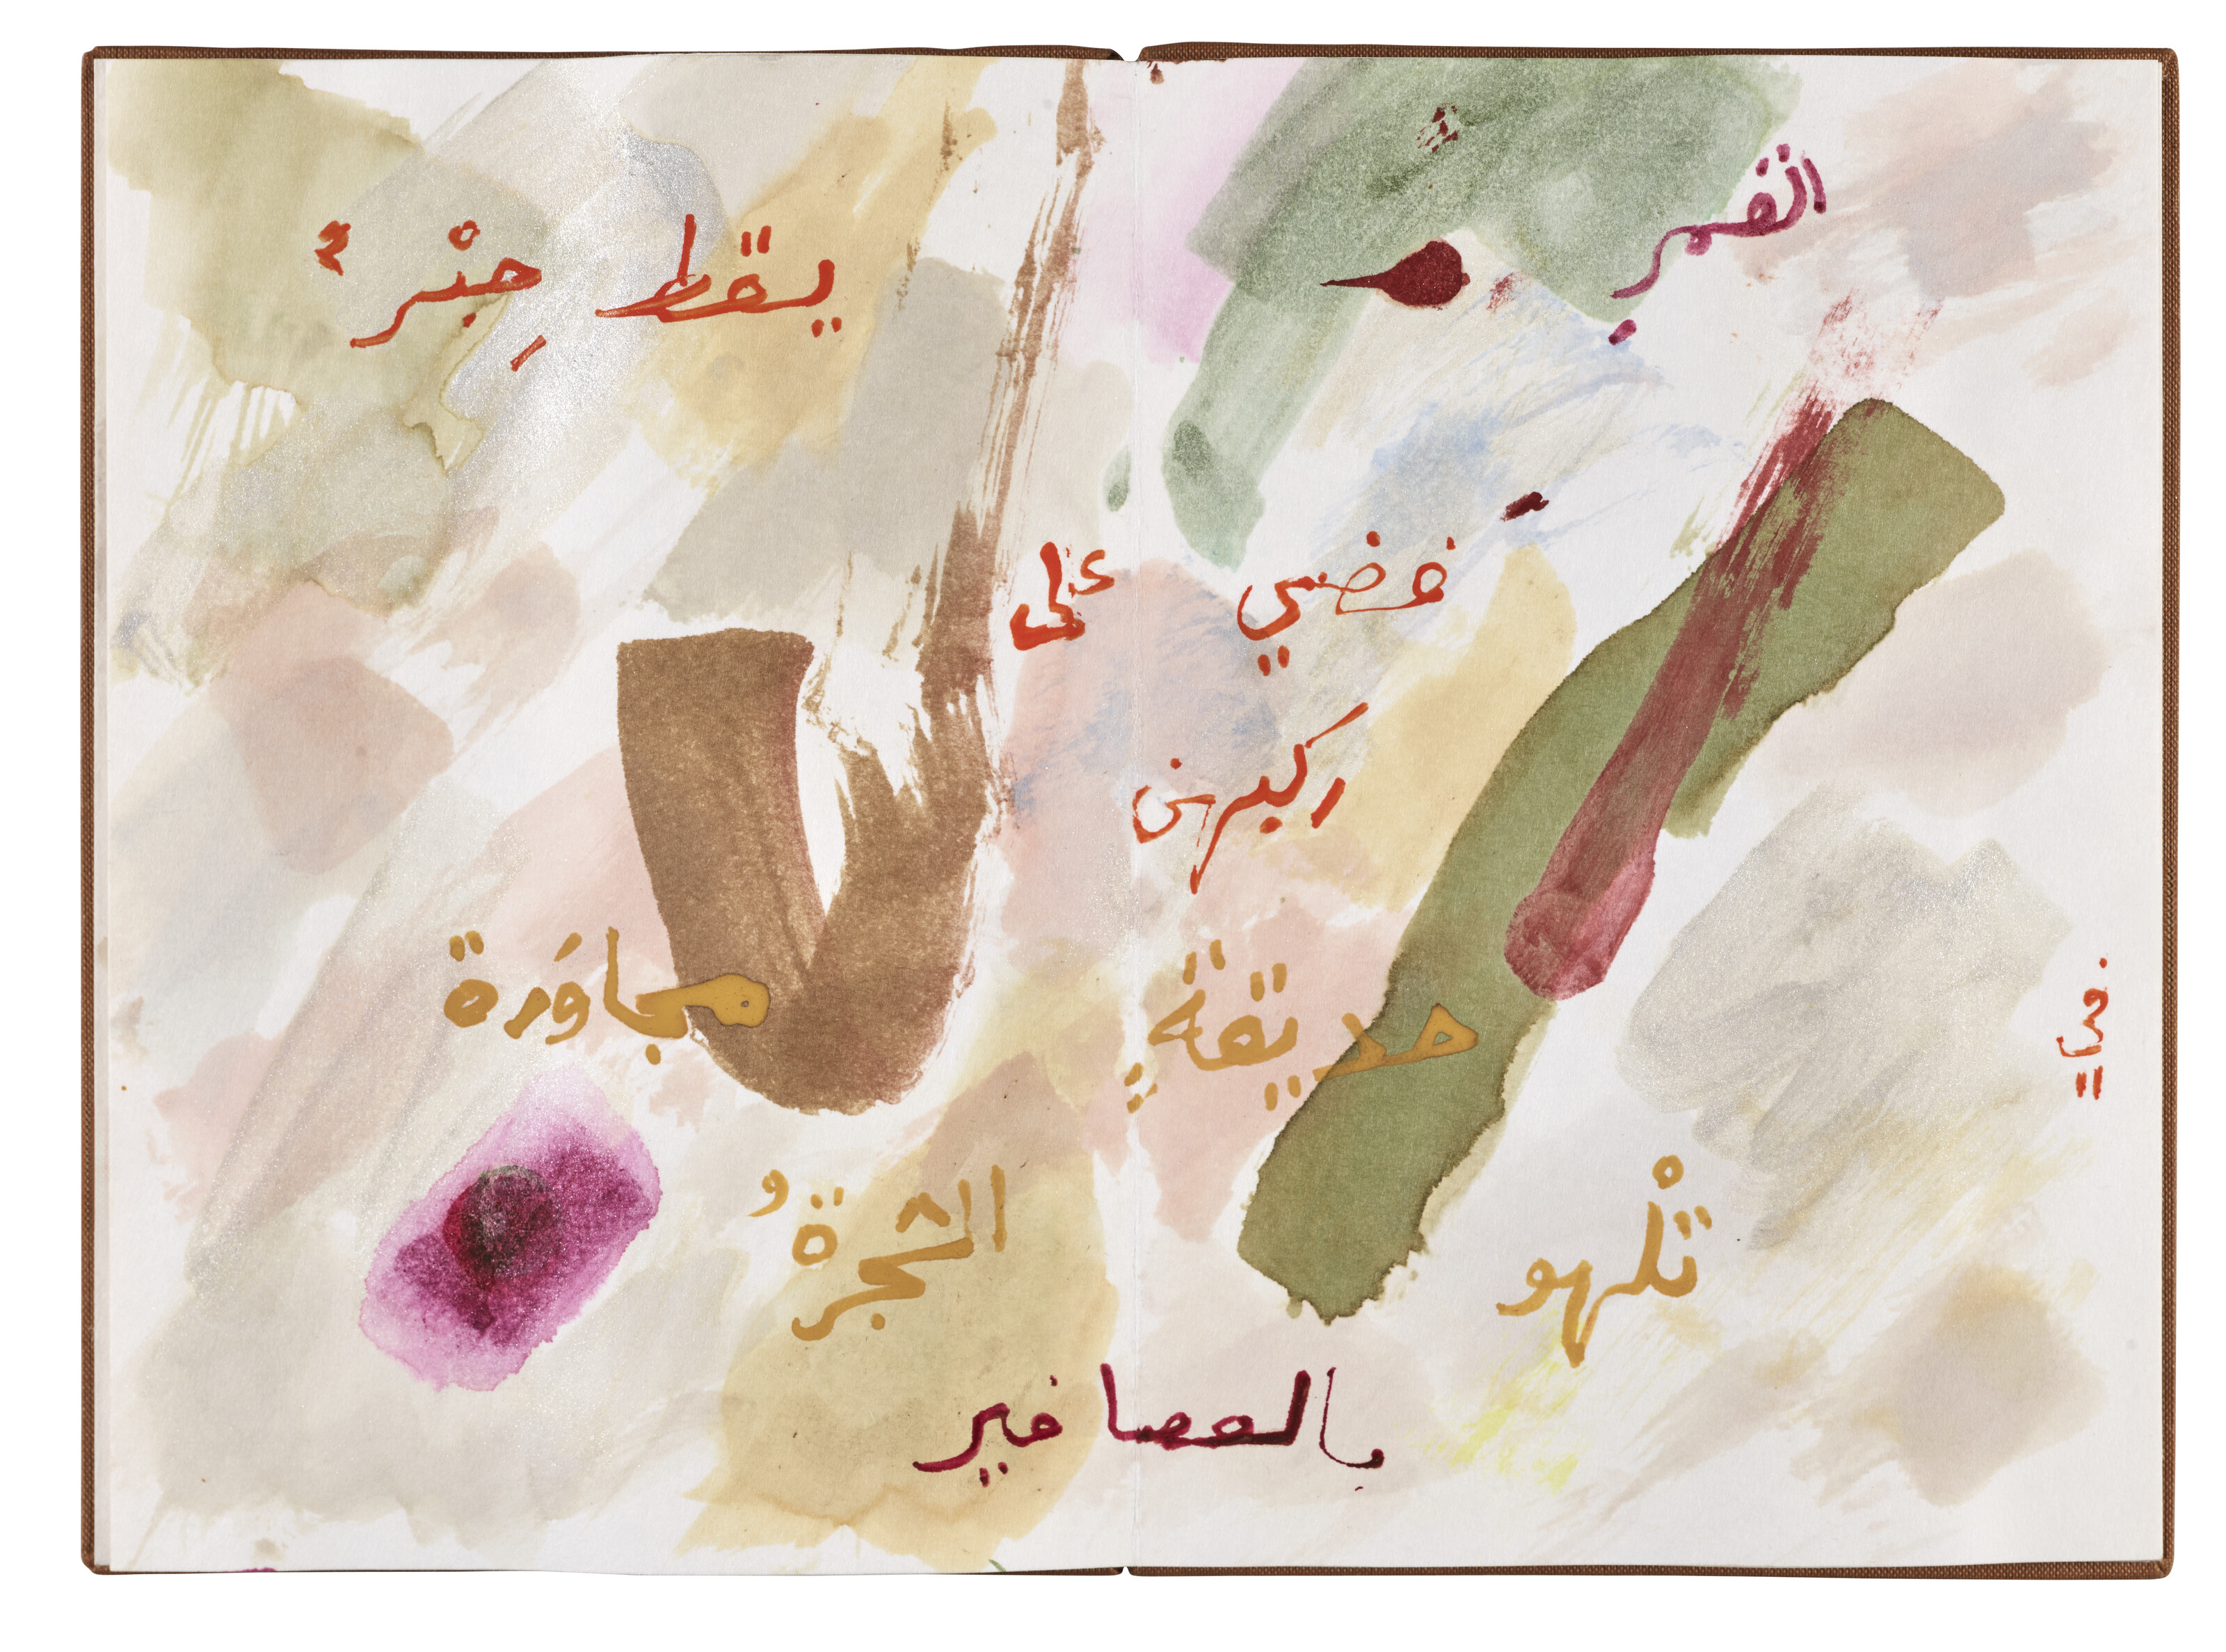 القمرِ يسقط حِبْرٌ
فضي على
في حديقةٍ مجاوَرة
تلْهو الشجرةُ
بالعصافير